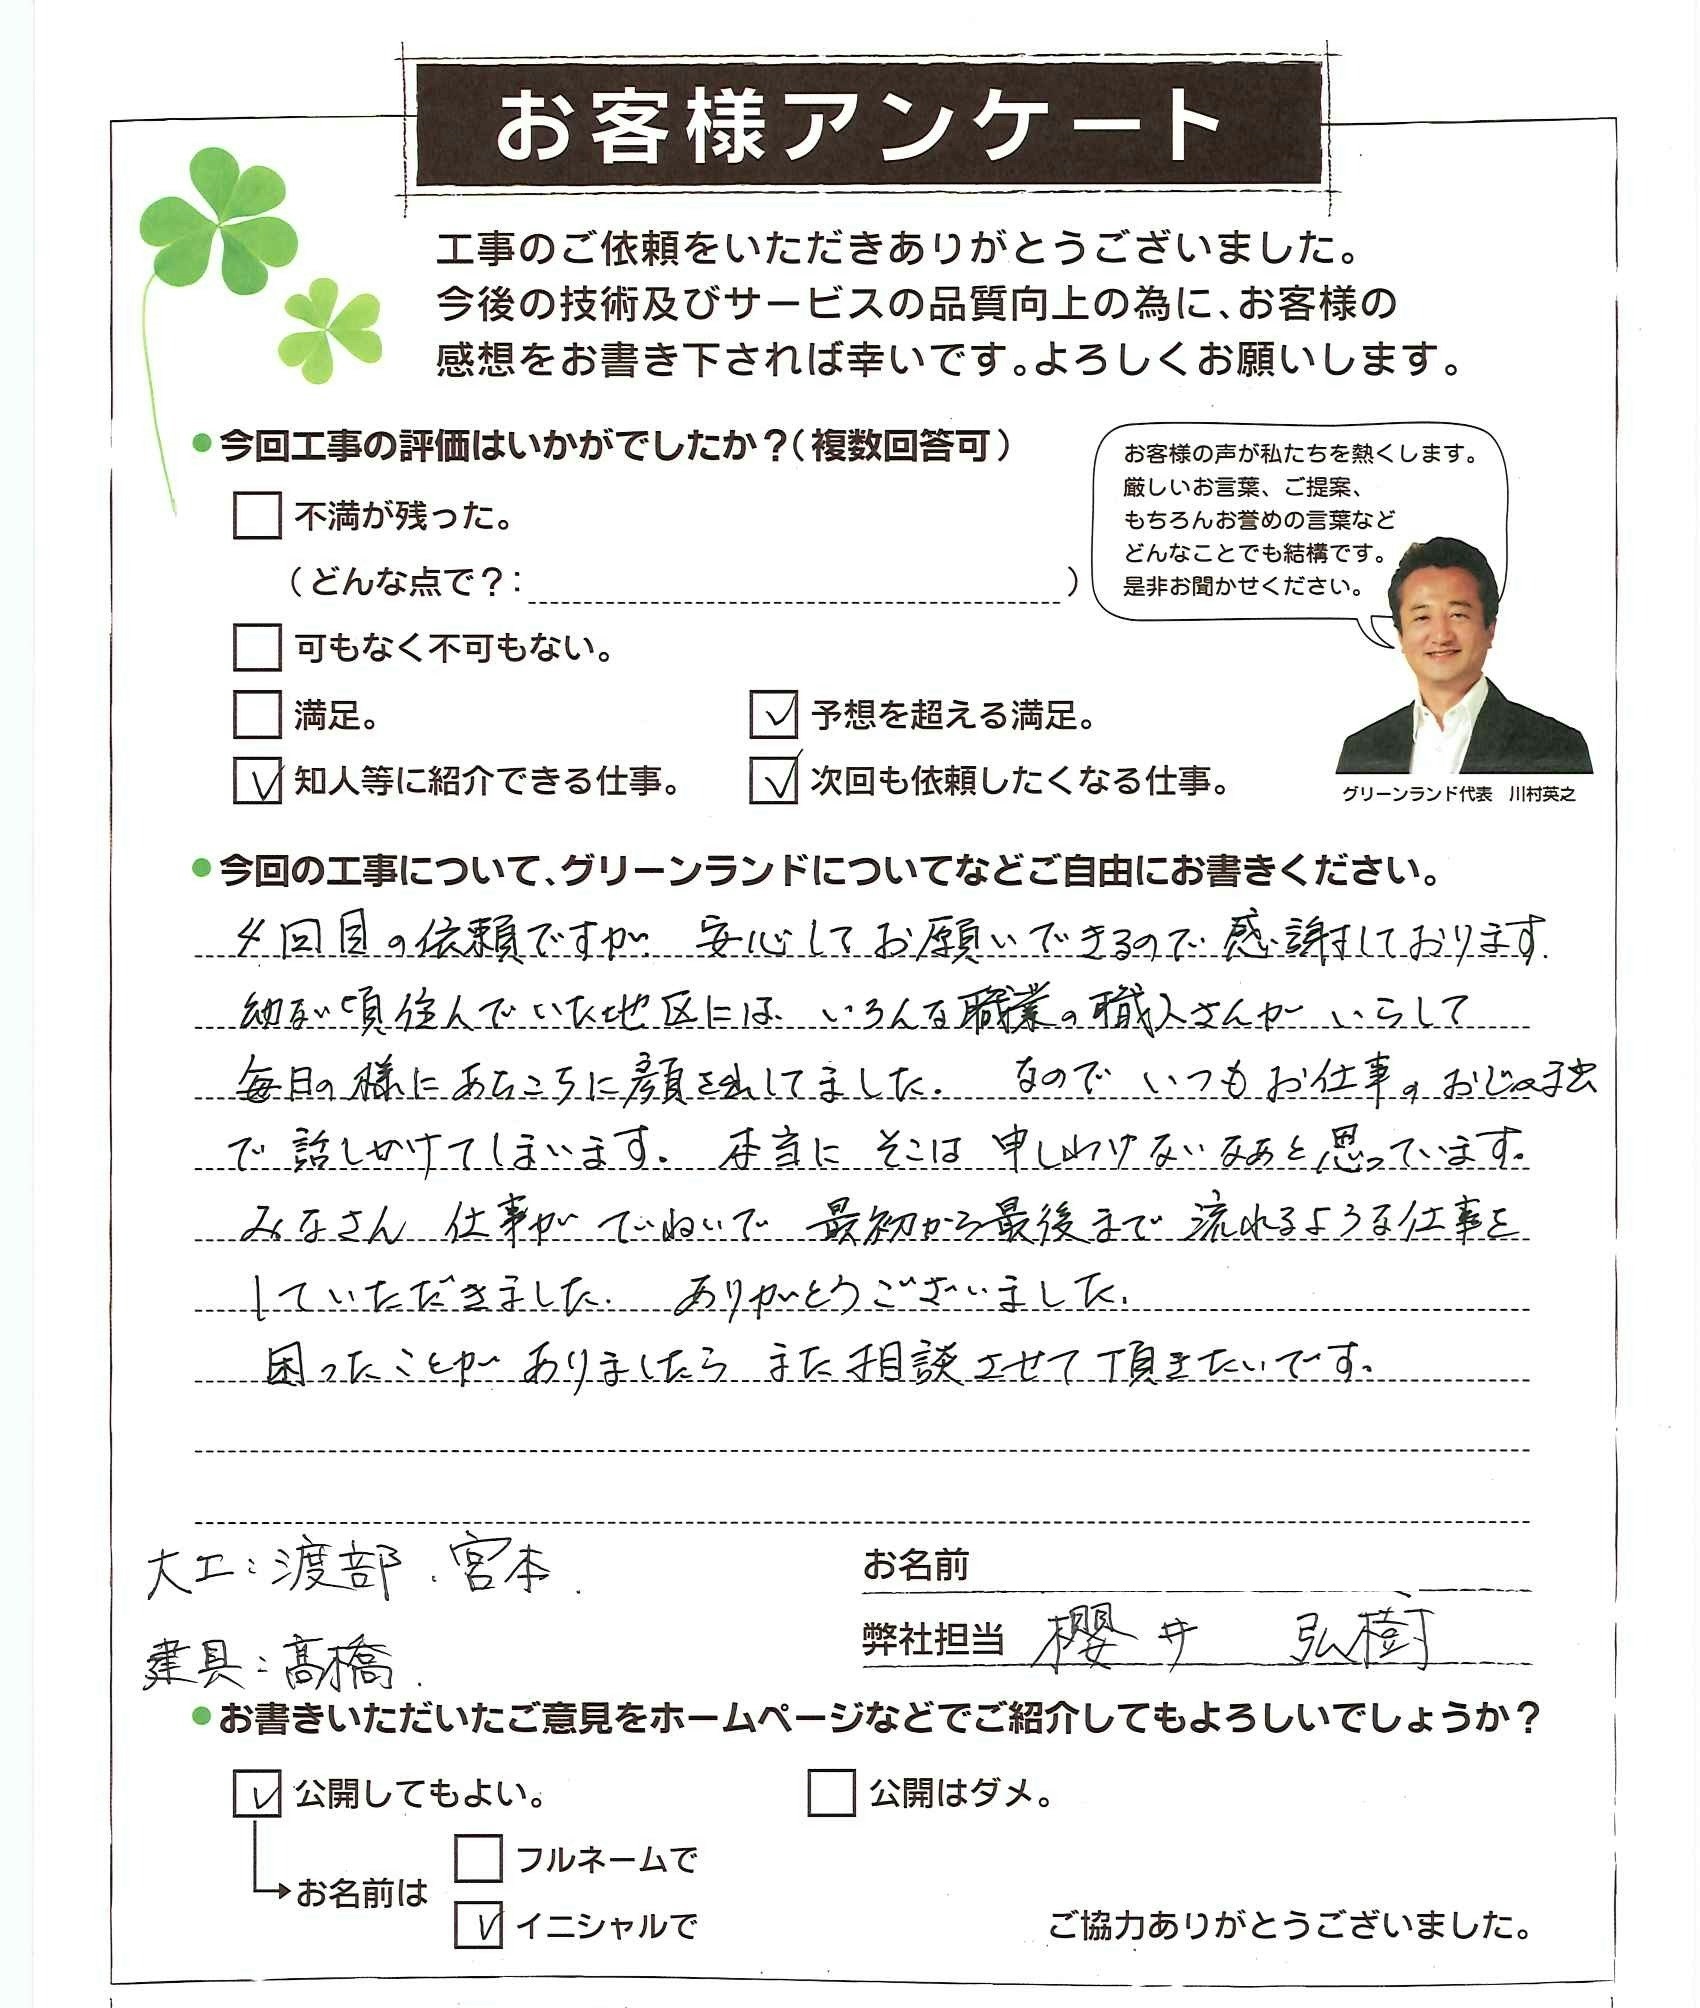 お客様アンケート
工事のご依頼をいただきありがとうございました。
今後の技術及びサービスの品質向上の為に、お客様の
感想をお書き下されば幸いです。よろしくお願いします。
●今回工事の評価はいかがでしたか？（複数回答可）
不満が残った。
（どんな点で？： ）
可もなく不可もない。
満足。
予想を超える満足。
知人等に紹介できる仕事。
次回も依頼したくなる仕事。
お客様の声が私たちを熱くします。
厳しいお言葉、ご提案、
もちろんお誉めの言葉など
どんなことでも結構です。
是非お聞かせください。
グリーンランド代表　川村英之
●今回の工事について、グリーンランドについてなどご自由にお書きください。
4回目の依頼ですが、安心してお願いできるので感謝しております.
幼ない頃住んでいた地区には、いろんな職業の職人さんが いらして
毎日の様にあちこちに顔を出してました. なのでいつもお仕事のおじゃま虫
で話しかけてしまいます. 本当に そこは 申しわけないなあと思っています.
みなさん 仕事が ていねいで 最初から最後まで 流れるような仕事を
していただきました. ありがとうございました.
困ったことが ありましたら また相談させて頂きたいです.
大工：渡部．宮本．
建具：髙橋．
お名前
弊社担当 櫻井 弘樹
●お書きいただいたご意見をホームページなどでご紹介してもよろしいでしょうか？
公開してもよい。
公開はダメ。
お名前は
フルネームで
イニシャルで
ご協力ありがとうございました。